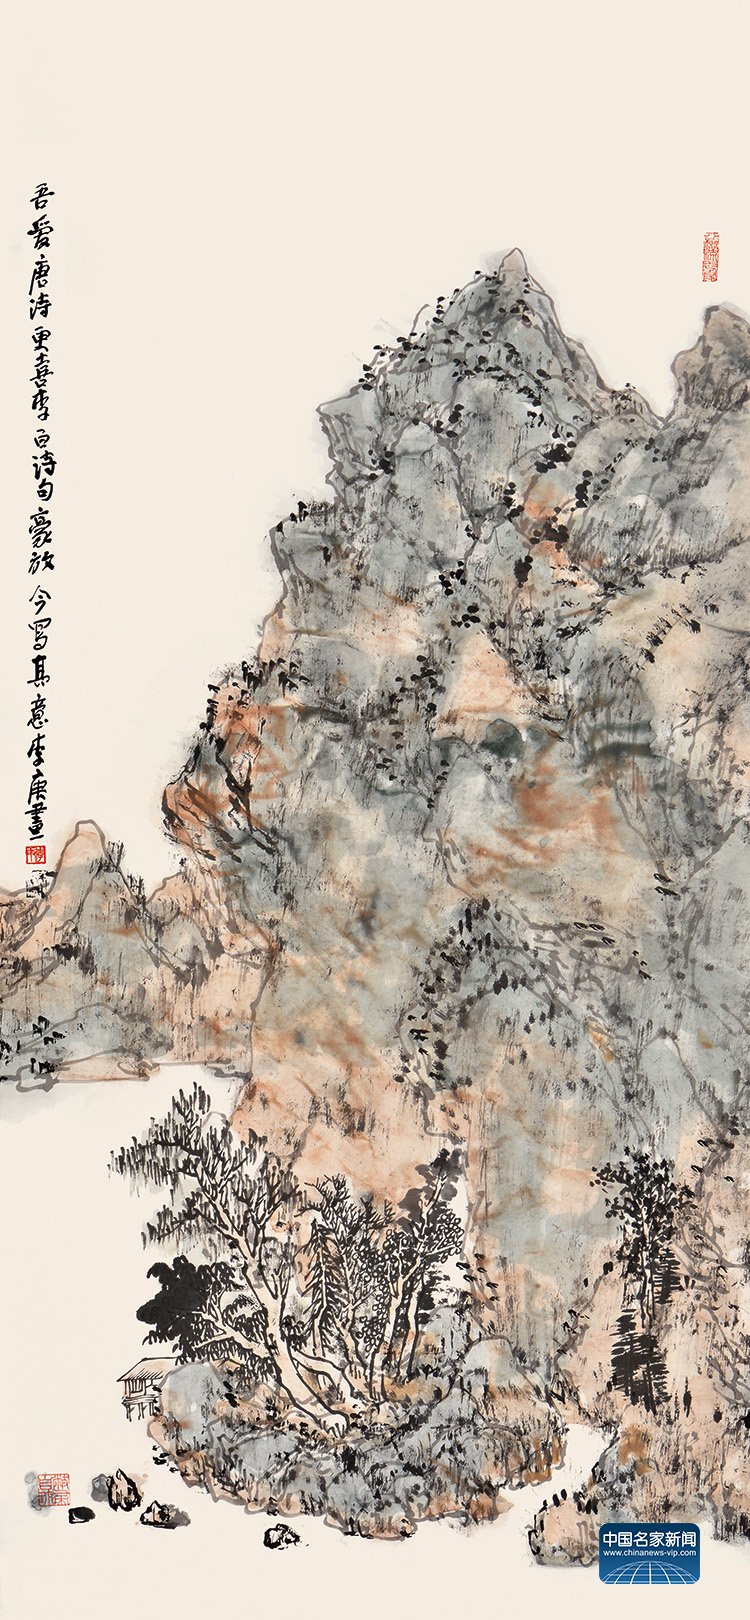 吾爱唐诗更喜李白诗句豪放今写其意李庚画
中国名家新闻
www.chinanews-vip.com